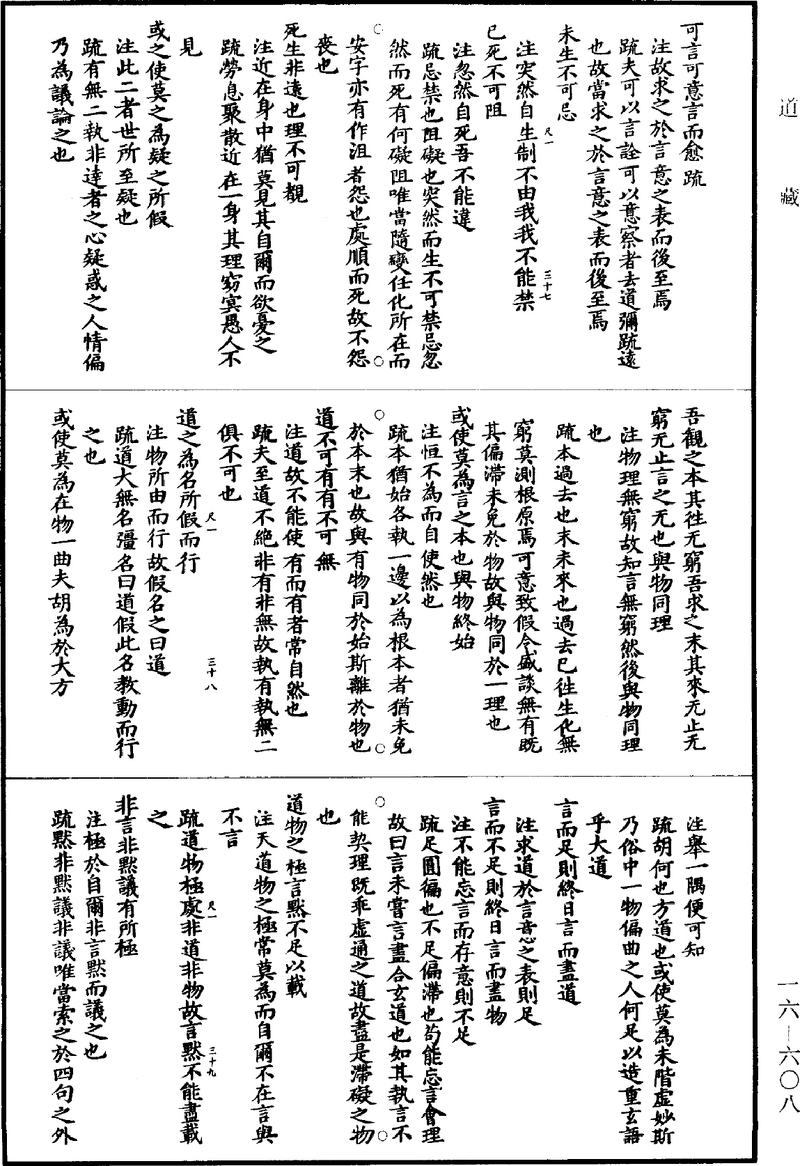 道藏
可言可意言而愈疏
注故求之於言意之表而後至焉
疏夫可以言詮可以意察者去道彌疏遠
也故當求之於言意之表而後至焉
未生不可忌
尺一 三十七
注突然自生制不由我我不能禁
已死不可阻
注忽然自死吾不能違
疏忌禁也阻礙也突然而生不可禁忌忽
然而死有何礙阻唯當隨變任化所在而
○安字亦有作沮者怨也處順而死故不怨○
喪也
死生非遠也理不可覩
注近在身中猶莫見其自爾而欲憂之
疏勞息聚散近在一身其理窈冥愚人不
見
或之使莫之為疑之所假
注此二者世所至疑也
疏有無二執非達者之心疑惑之人情偏
乃為議論之也
吾觀之本其徃无窮吾求之末其來无止无
窮无止言之无也與物同理
注物理無窮故知言無窮然後與物同理
也
疏本過去也末未來也過去已徃生化無
窮莫測根原焉可意致假令盛談無有既
其偏滯未免於物故與物同於一理也
或使莫為言之本也與物終始
注恒不為而自使然也
疏本猶始各執一邊以為根本者猶未免
○於本末也故與有物同於始斯離於物也○
道不可有有不可無
注道故不能使有而有者常自然也
疏夫至道不絶非有非無故執有執無二
俱不可也
尺一 三十八
道之為名所假而行
注物所由而行故假名之曰道
疏道大無名彊名曰道假此名教動而行
之也
或使莫為在物一曲夫胡為於大方
注舉一隅便可知
疏胡何也方道也或使莫為未階虛妙斯
乃俗中一物偏曲之人何足以造重玄語
乎大道
言而足則終日言而盡道
注求道於言意之表則足
言而不足則終日言而盡物
注不能忘言而存意則不足
疏足圓徧也不足偏滯也苟能忘言會理
故曰言未嘗言盡合玄道也如其執言不
○能契理既乖虛通之道故盡是滯礙之物○
也
道物之極言默不足以載
注夫道物之極常莫為而自爾不在言與
不言
尺一 三十九
疏道物極處非道非物故言默不能盡載
之
非言非默議有所極
注極於自爾非言默而議之也
疏默非默議非議唯當索之於四句之外
一六—六〇八